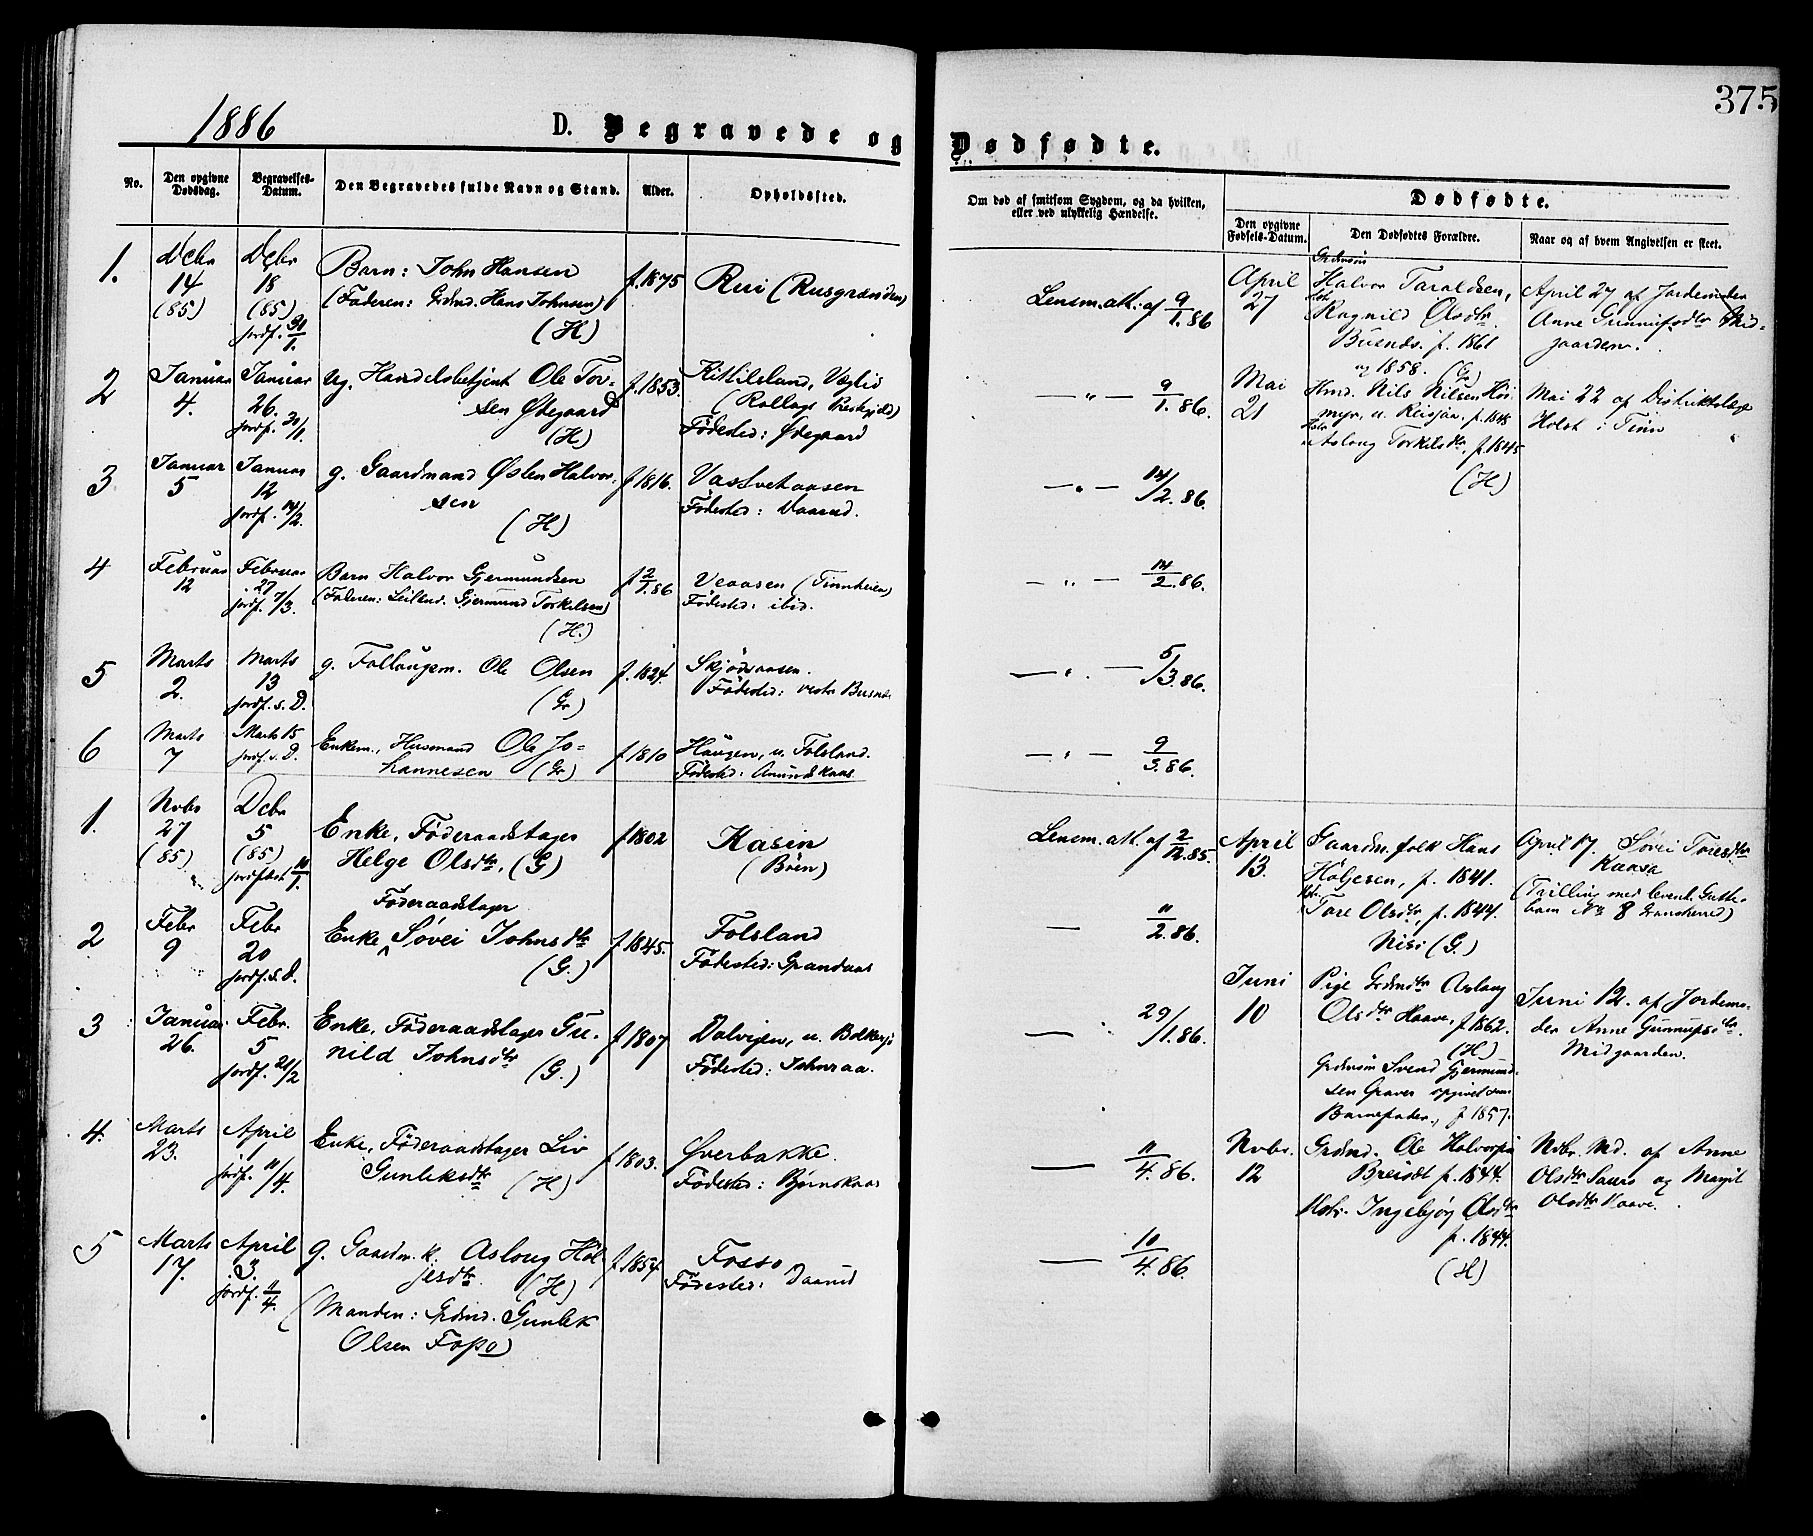 375
1886 D. Begravede og Dødfødte.
No. Den opgivne Dødsdag. Begravelses-Datum. Den Begravedes fulde Navn og Stand. Alder. Opholdssted.
Om død af smitsom Sygdom, og da hvilken, eller ved ulykkelig Hændelse.
Dødfødte.
Den opgivne Fødsels-Datum. Den Dødfødtes Forældre. Naar og af hvem Angivelsen er skeet.
1. Debr Debr Barn: John Hansen f. 1875 Rui (Rusgrænden)
14 18 (Faderen: Grdmd. Hans Johnsen)
(85) (85) (H)
jordf. 31/1.
2 Januar Januar Ug. Handelsbetjent Ole Tov- f. 1853. Kittilsland, Veglid
4. 26. sen Ødegaard (Rollags Prestgjeld)
jordf. 30/1. (H) Fødested: Ødegaard
3 Januar Januar g. Gaardmand Østen Halvor- f 1816.
5 12 sen Fødested: Daarud.
jordf. 14/2. (H)
4 Februar Februar Barn Halvor Gjermundsen f 2/1.86 Veaasen (Tinnheien)
12 27 (Faderen: Leilend. Gjermund Torkilsen) Fødested: ibid.
jordf. 7/3. (H.)
5 Marts Marts g. Ole Olsen f. 1824. Skjødsaasen.
2. 13 (Gr) Fødested: vestr Busnes
jordf. s. D.
6 Marts Marts 15 Enkem., Husmand Ole Jo- f 1810 Haugen, u. Folsland.
7 jordf. s. D. hannesen (Gr) Fødested: Amundskaas
1. Nvbr Debr Enke, Føderaadstager f 1802 Kasin
27 5 Helge Olsdtr. (G) (Bøen)
(85) (85)
jordfæst 10/1.
2 Febr Febr Føderaadstager
9 20 Enke Søvei Johnsdtr f 1845. Folsland
jordf. s. D. (G.) Fødested: Grandaas
3 Januar Febr. Enke, Føderaadstager Gu- f 1807 Dalvigen, u. Bolkesjø
26. 5 nild Johnsdtr (G.) Fødested: Johnraa.
jordf. 21/2
4. Marts April Enke, Føderaadstager Liv f 1803. Øverbakke.
23. 1 Gunleksdtr (H) Fødested: Bjørnskaas
jordf. 11/4.
5 Marts April g. Gaardm. k. Aslaug Høl- f. 1854. Fosso
17. 3. jesdtr. (H) Fødested: Daarud
jordf. 11/4. (Manden: Grdmd. Gunlek
Olsen Fosso)
Lensm. att. af 9/1. 86
— „ — 9/1. 86.
— „ — 14/2. 86.
— „ — 14/2. 86.
— „ — 5/3. 86.
— „ — 9/3. 86.
Lensm. att. af 2/12. 85.
— 11/2. 86.
— 29/1. 86.
— 11/4. 86.
— 10/4. 86.
April Grdmsøn
27 Halvor Taraldsen, April 27 af Jordemoder
Hstr Ragnild Olsdtr Anne Gunnufsdtr Mid-
Busnds. f. 1861 gaarden.
og 1858. (Gr)
Mai Hmd. Nils Nilsen Høi- Mai 22 af Distriktslæge
21 myr, u. Reisjaa, f. 1848 Holst i Tinn
Hstr Aslaug Torkilsdtr, f. 1845
(H)
April Gaardm. folk Hans April 17. Søvei Toresdtr
13. Høljesen, f. 1841. Kaasa
Hstr. Tore Olsdtr, f. 1844. (Tvilling med levend. Gutte-
Nisi (G.) barn No 8 Gransherred)
Juni Pige Grdmdtr Aslaug Juni 12. af Jordemo-
10 Olsdtr Haave, f 1862. der Anne Gunnufsdtr.
(H) Midgaarden.
Grdmsøn Svend Gjermund-
sen Graver opgivet som
Barnefader, f 1857.
Nvbr. Grdmd. Ole Halvorsen Nvbr. Md. af Anne
12 Breisdt f. 1844. Olsdtr Saurs og Margit
Hstr. Ingebjør Olsdtr Olsdtr Haave.
f. 1844.
(H)